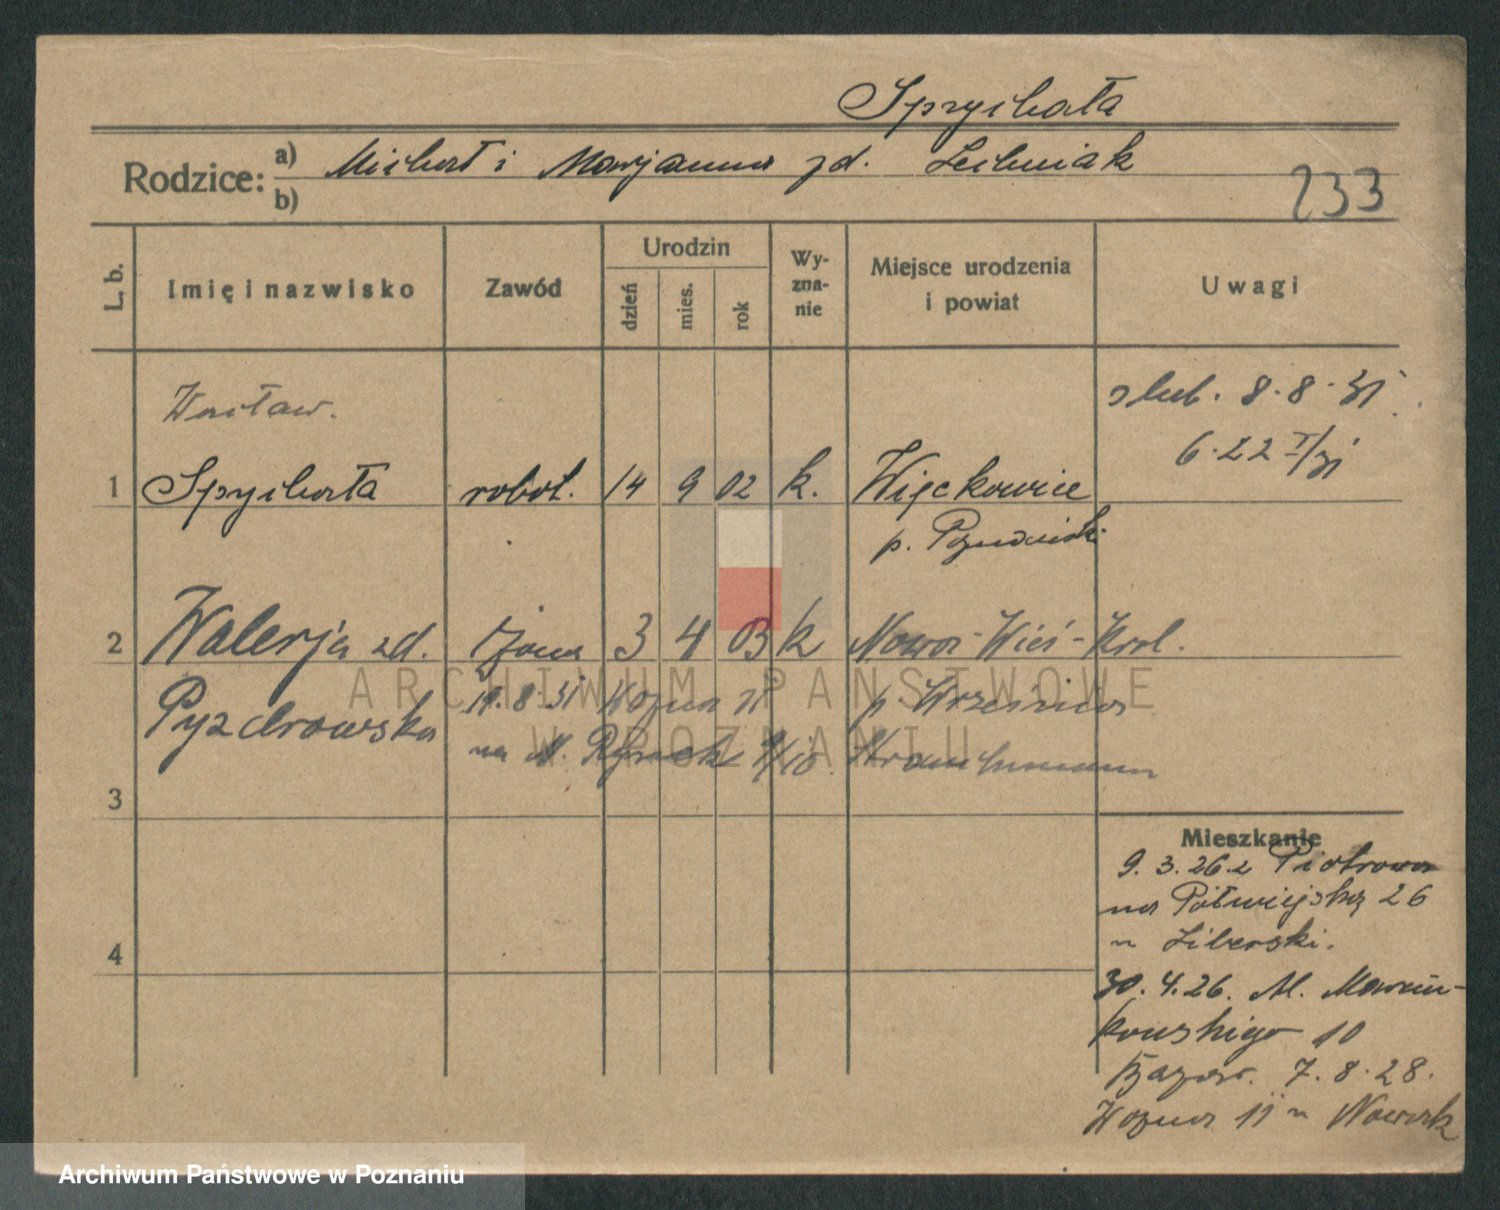 Sprychała
Rodzice:
a) Michał i Marjanna zd.
b)
233
L. b.
Imię i nazwisko
Zawód
Urodzin
dzień
mies.
rok
Wy-
zna-
nie
Miejsce urodzenia
i powiat
Uwagi
Wacław.
ślub. 8.8.31
6.22
1 Sprychała robot. 14 9 02 k. Więckowice
p. Poznański
2 Walerja zd. żona 3 4 03 k Nowa-Wieś-Krol.
Pyzdrowska 19.8.31 Woźna 11 p Września
na St. Rynek
3
Mieszkanie
9.3.26 z Piotrowa
na Półwiejską 26
u Liberski.
4
30.4.26. Al. Marcin-
kowskiego 10
7.8.28.
Woźna 11 u Nowak
ARCHIWUM PAŃSTWOWE
W POZNANIU
Archiwum Państwowe w Poznaniu